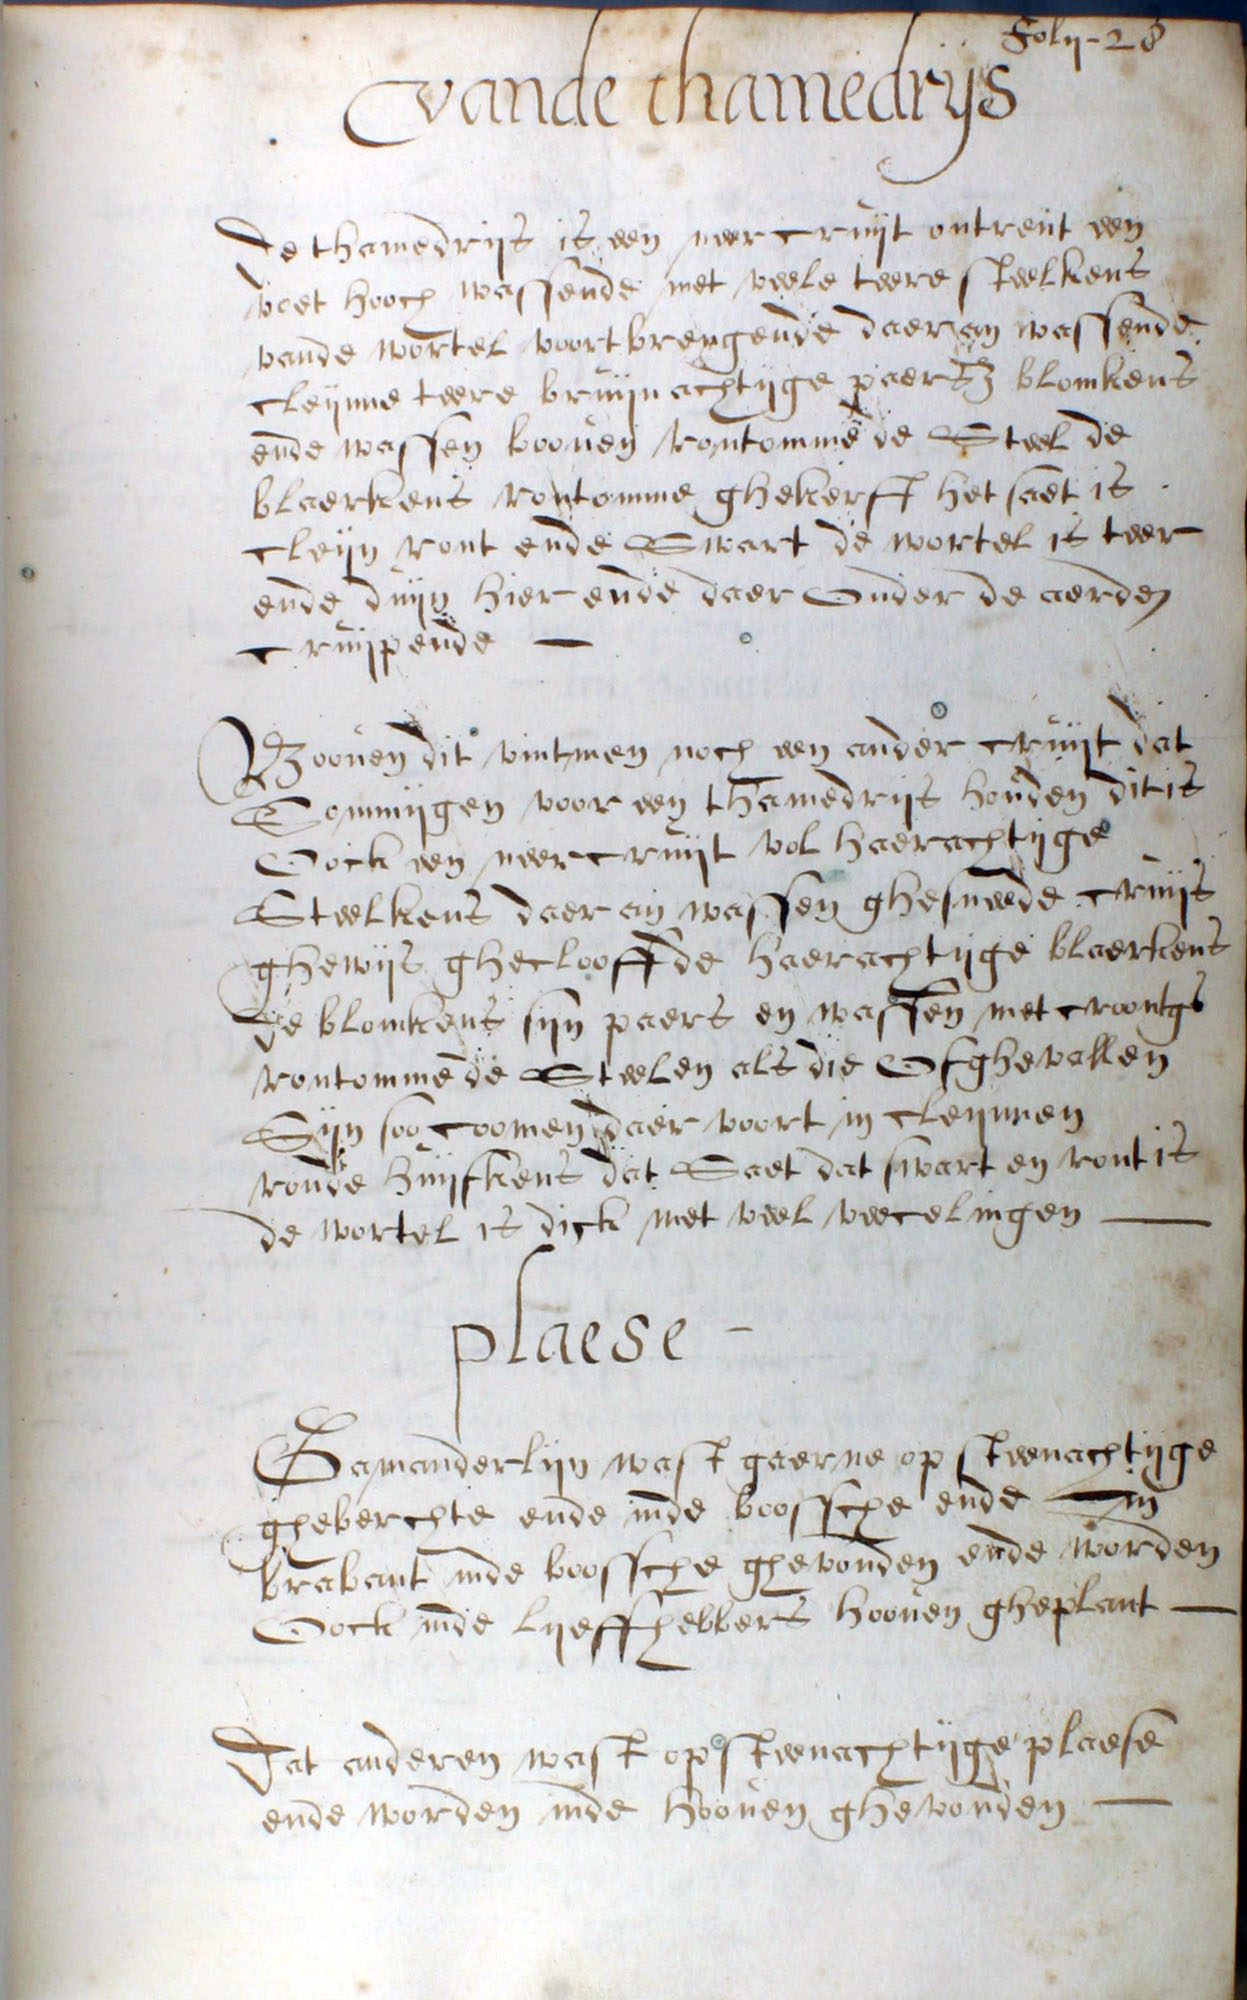 Folij-28
vande thamedrijs
De thamedrijs is een neer cruijt ontrent een
voet hooch wassende met veele teere steelkens
vande wortel voortbrengende daer an wassende
cleijnne teere bruijnachtijge paers blomkens
ende wassen booven rontomme de Steel de
blaerkens rontomme ghekerft het saet is
cleijn ront ende Swart de wortel is teer
ende duijn hier ende daer Onder de aerden
cruijpende —
Booven dit vintmen noch een ander cruijt dat
Sommijgen voor een thamedrijs houden dit is
Oock een neer cruijt vol haerachtijge
Steelkens daer an wassen ghesneede cruijs
ghewijs ghecloofde haerachtijge blaerkens
De blomkens sijn paers en wassen met croontgs
rontomme de Steelen als die Ofghevallen
Sijn soo coomen daer voort in cleijnnen
ronde huijskens dat Saet dat swart en ront is
de wortel is dick met veel veecelingen —
plaese -
Gamanderlijn wast gaerne op steenachtijge
gheberchte ende inde boossche ende in
brabant inde boossche ghevonden ende worden
Oock inde lijeffhebbers hooven gheplant —
Dat anderen wast op steenachtijge plaese
ende worden inde hooven ghevonden —